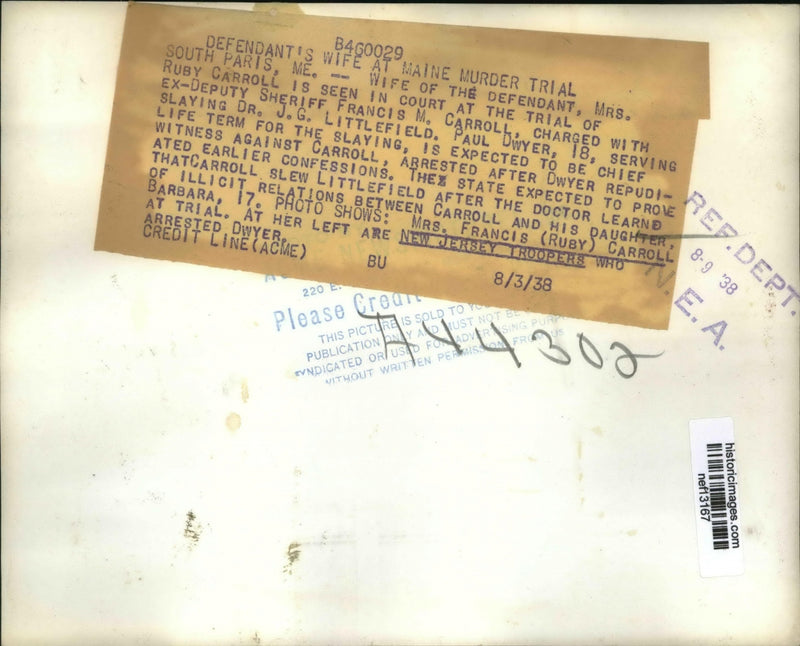 B4G0029
DEFENDANT'S WIFE AT MAINE MURDER TRIAL
SOUTH PARIS, ME. -- WIFE OF THE DEFENDANT, MRS.
RUBY CARROLL IS SEEN IN COURT AT THE TRIAL OF
EX-DEPUTY SHERIFF FRANCIS M. CARROLL, CHARGED WITH
SLAYING DR. J.G. LITTLEFIELD. PAUL DWYER, 18, SERVING
LIFE TERM FOR THE SLAYING, IS EXPECTED TO BE CHIEF
WITNESS AGAINST CARROLL, ARRESTED AFTER DWYER REPUDI-
ATED EARLIER CONFESSIONS. THEZ STATE EXPECTED TO PROVE
THATCARROLL SLEW LITTLEFIELD AFTER THE DOCTOR LEARND
OF ILLICIT RELATIONS BETWEEN CARROLL AND HIS DAUGHTER,
BARBARA, 17. PHOTO SHOWS: MRS. FRANCIS (RUBY) CARROLL
AT TRIAL. AT HER LEFT ARE NEW JERSEY TROOPERS WHO
ARRESTED DWYER.
CREDIT LINE(ACME)
BU 8/3/38
220 E.
Please Credit
THIS PICTURE IS SOLD TO YO
PUBLICATION ONLY AND MUST NOT BE
SYNDICATED OR USED FOR ADVERTISING PURP
WITHOUT WRITTEN PERMISSION FROM US
A44302
REF. DEPT.
8-9 '38
N. E. A.
historicimages.com
nef13167